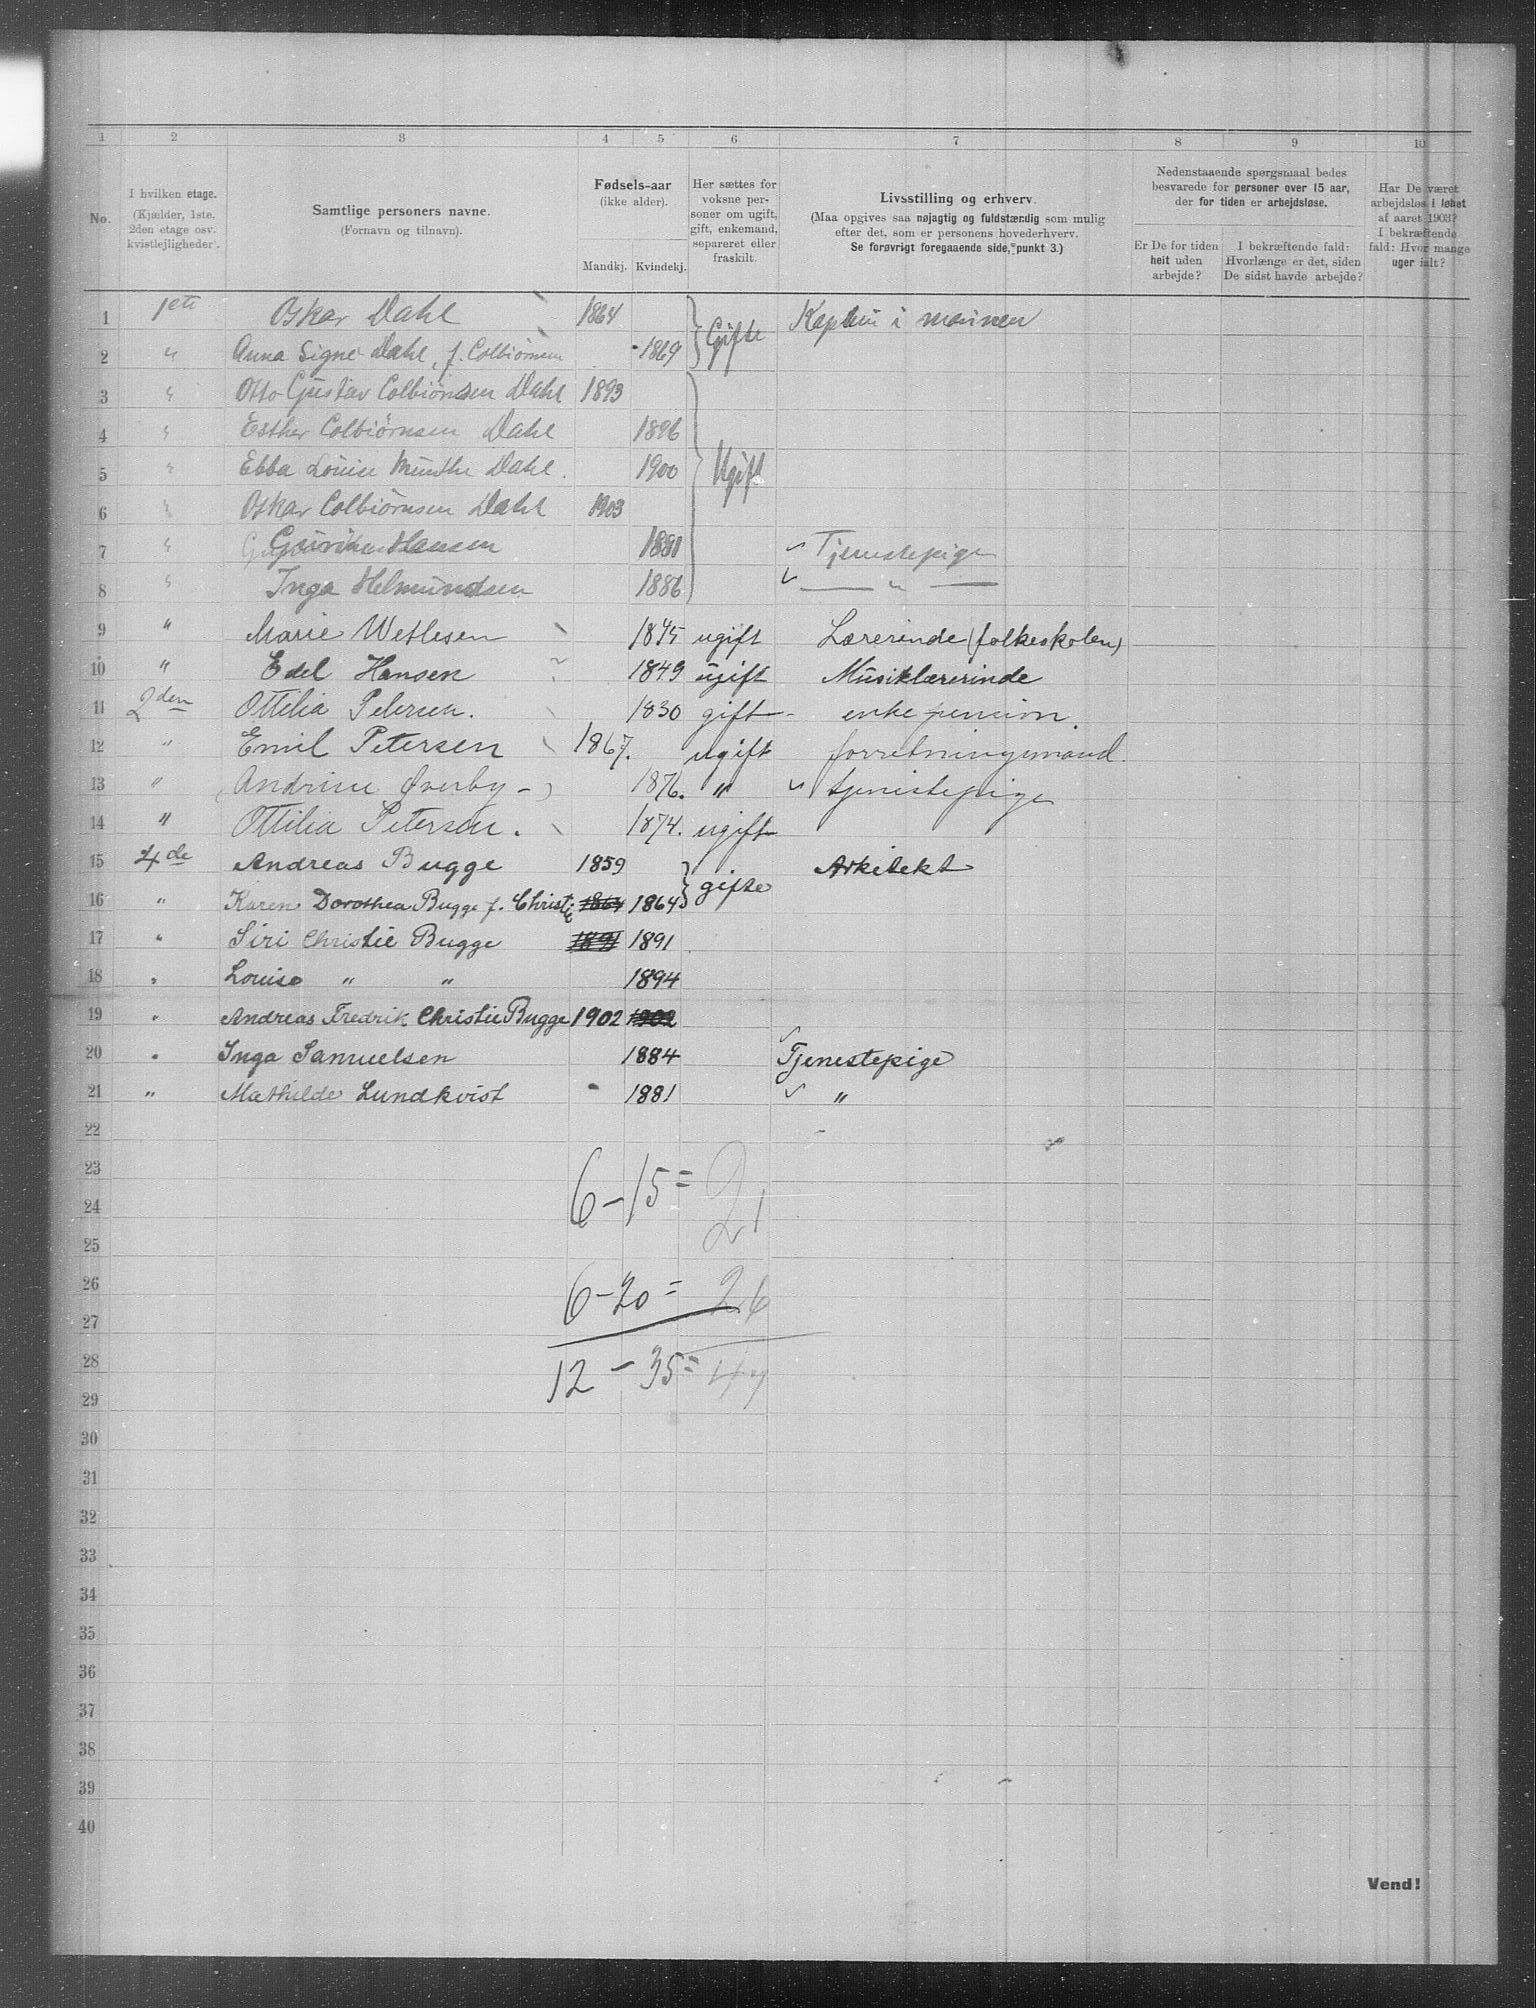 1 2 3 4 5 6 7 8 9 10
No.
I hvilken etage.
(Kjælder, 1ste.
2den etage osv.
kvistlejligheder).
Samtlige personers navne.
(Fornavn og tilnavn).
Fødsels-aar
(ikke alder).
Mandkj. Kvindekj.
Her sættes for
voksne per-
soner om ugift,
gift, enkemand,
separeret eller
fraskilt.
Livsstilling og erhverv.
(Maa opgives saa nøjagtig og fuldstændig som mulig
efter det, som er personens hovederhverv.
Se forøvrigt foregaaende side, punkt 3.)
Nedenstaaende spørgsmaal bedes
besvarede for personer over 15 aar,
der for tiden er arbejdsløse.
Er De for tiden
helt uden
arbejde?
I bekræftende fald:
Hvorlænge er det, siden
De sidst havde arbejde?
Har De været
arbejdsløs i løbet
af aaret 1903?
I bekræftende
fald: Hvor mange
uger ialt?
1 1ste Oskar Dahl 1864 Gifte Kaptein i marinen
2 " Anna Signe Dahl, f. Colbiørnsen 1869
3 " Otto Gustav Colbiørnsen Dahl 1893
4 " Esther Colbiørnsen Dahl 1896
5 " Ebba Louise Munthe Dahl. 1900 Ugift
6 " Oskar Colbiørnsen Dahl 1903
7 " Hansen 1881 Tjenestepige
8 " Inga Helmundsen 1886 — " —
9 " Marie Wetlesen 1845 ugift Lærerinde (folkeskolen)
10 " Edel Hansen 1849 ugift Musiklærerinde
11 2den Ottilia Petersen. 1830 gift - enkepension.
12 " Emil Petersen 1867. ugift forretningsmand.
13 " (Andrine Øverby -) 1876. " tjenestepige
14 " Ottilia Petersen. 1874. ugift
15 4de Andreas Bugge 1859 gifte Arkitekt
16 " Karen Dorothea Bugge f. Christie 1864 1864
17 " Siri Christie Bugge 1891 1891
18 " Louise " " 1894
19 " Andreas Fredrik Christie Bugge 1902 1902
20 " Inga Samuelsen 1884 Tjenestepige
21 " Mathilde Lundkvist 1881 "
22
23
6-15 = 21
24
25
26
6-20 = 26
27
28
12 - 35 = 47
29
30
31
32
33
34
35
36
37
38
39
40
Vend!